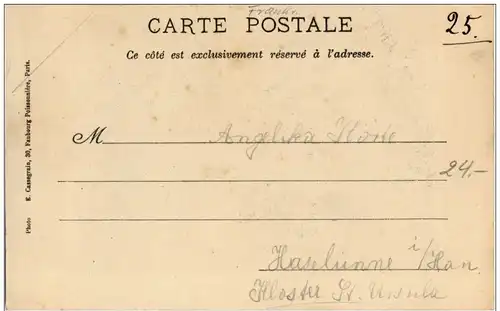 Frankr.
CARTE POSTALE
25.
Ce côté est exclusivement réservé à l'adresse.
Photo E. Cassegrain, 30, Faubourg Poissonnière, Paris.
M Angelika
24.-
Haselünne i/Han
Kloster St. Ursula